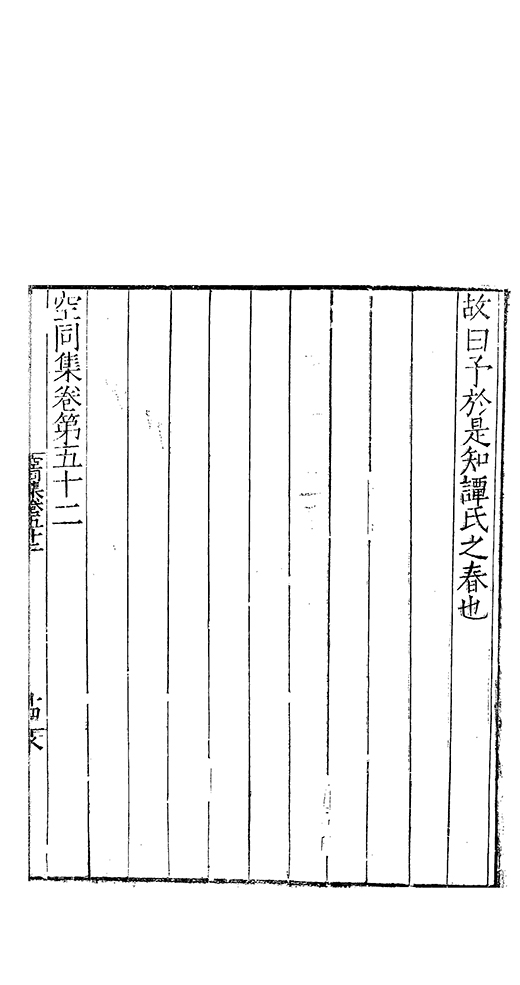 故曰予於是知譚氏之春也
空同集卷第五十二
空同集卷五十二
十四